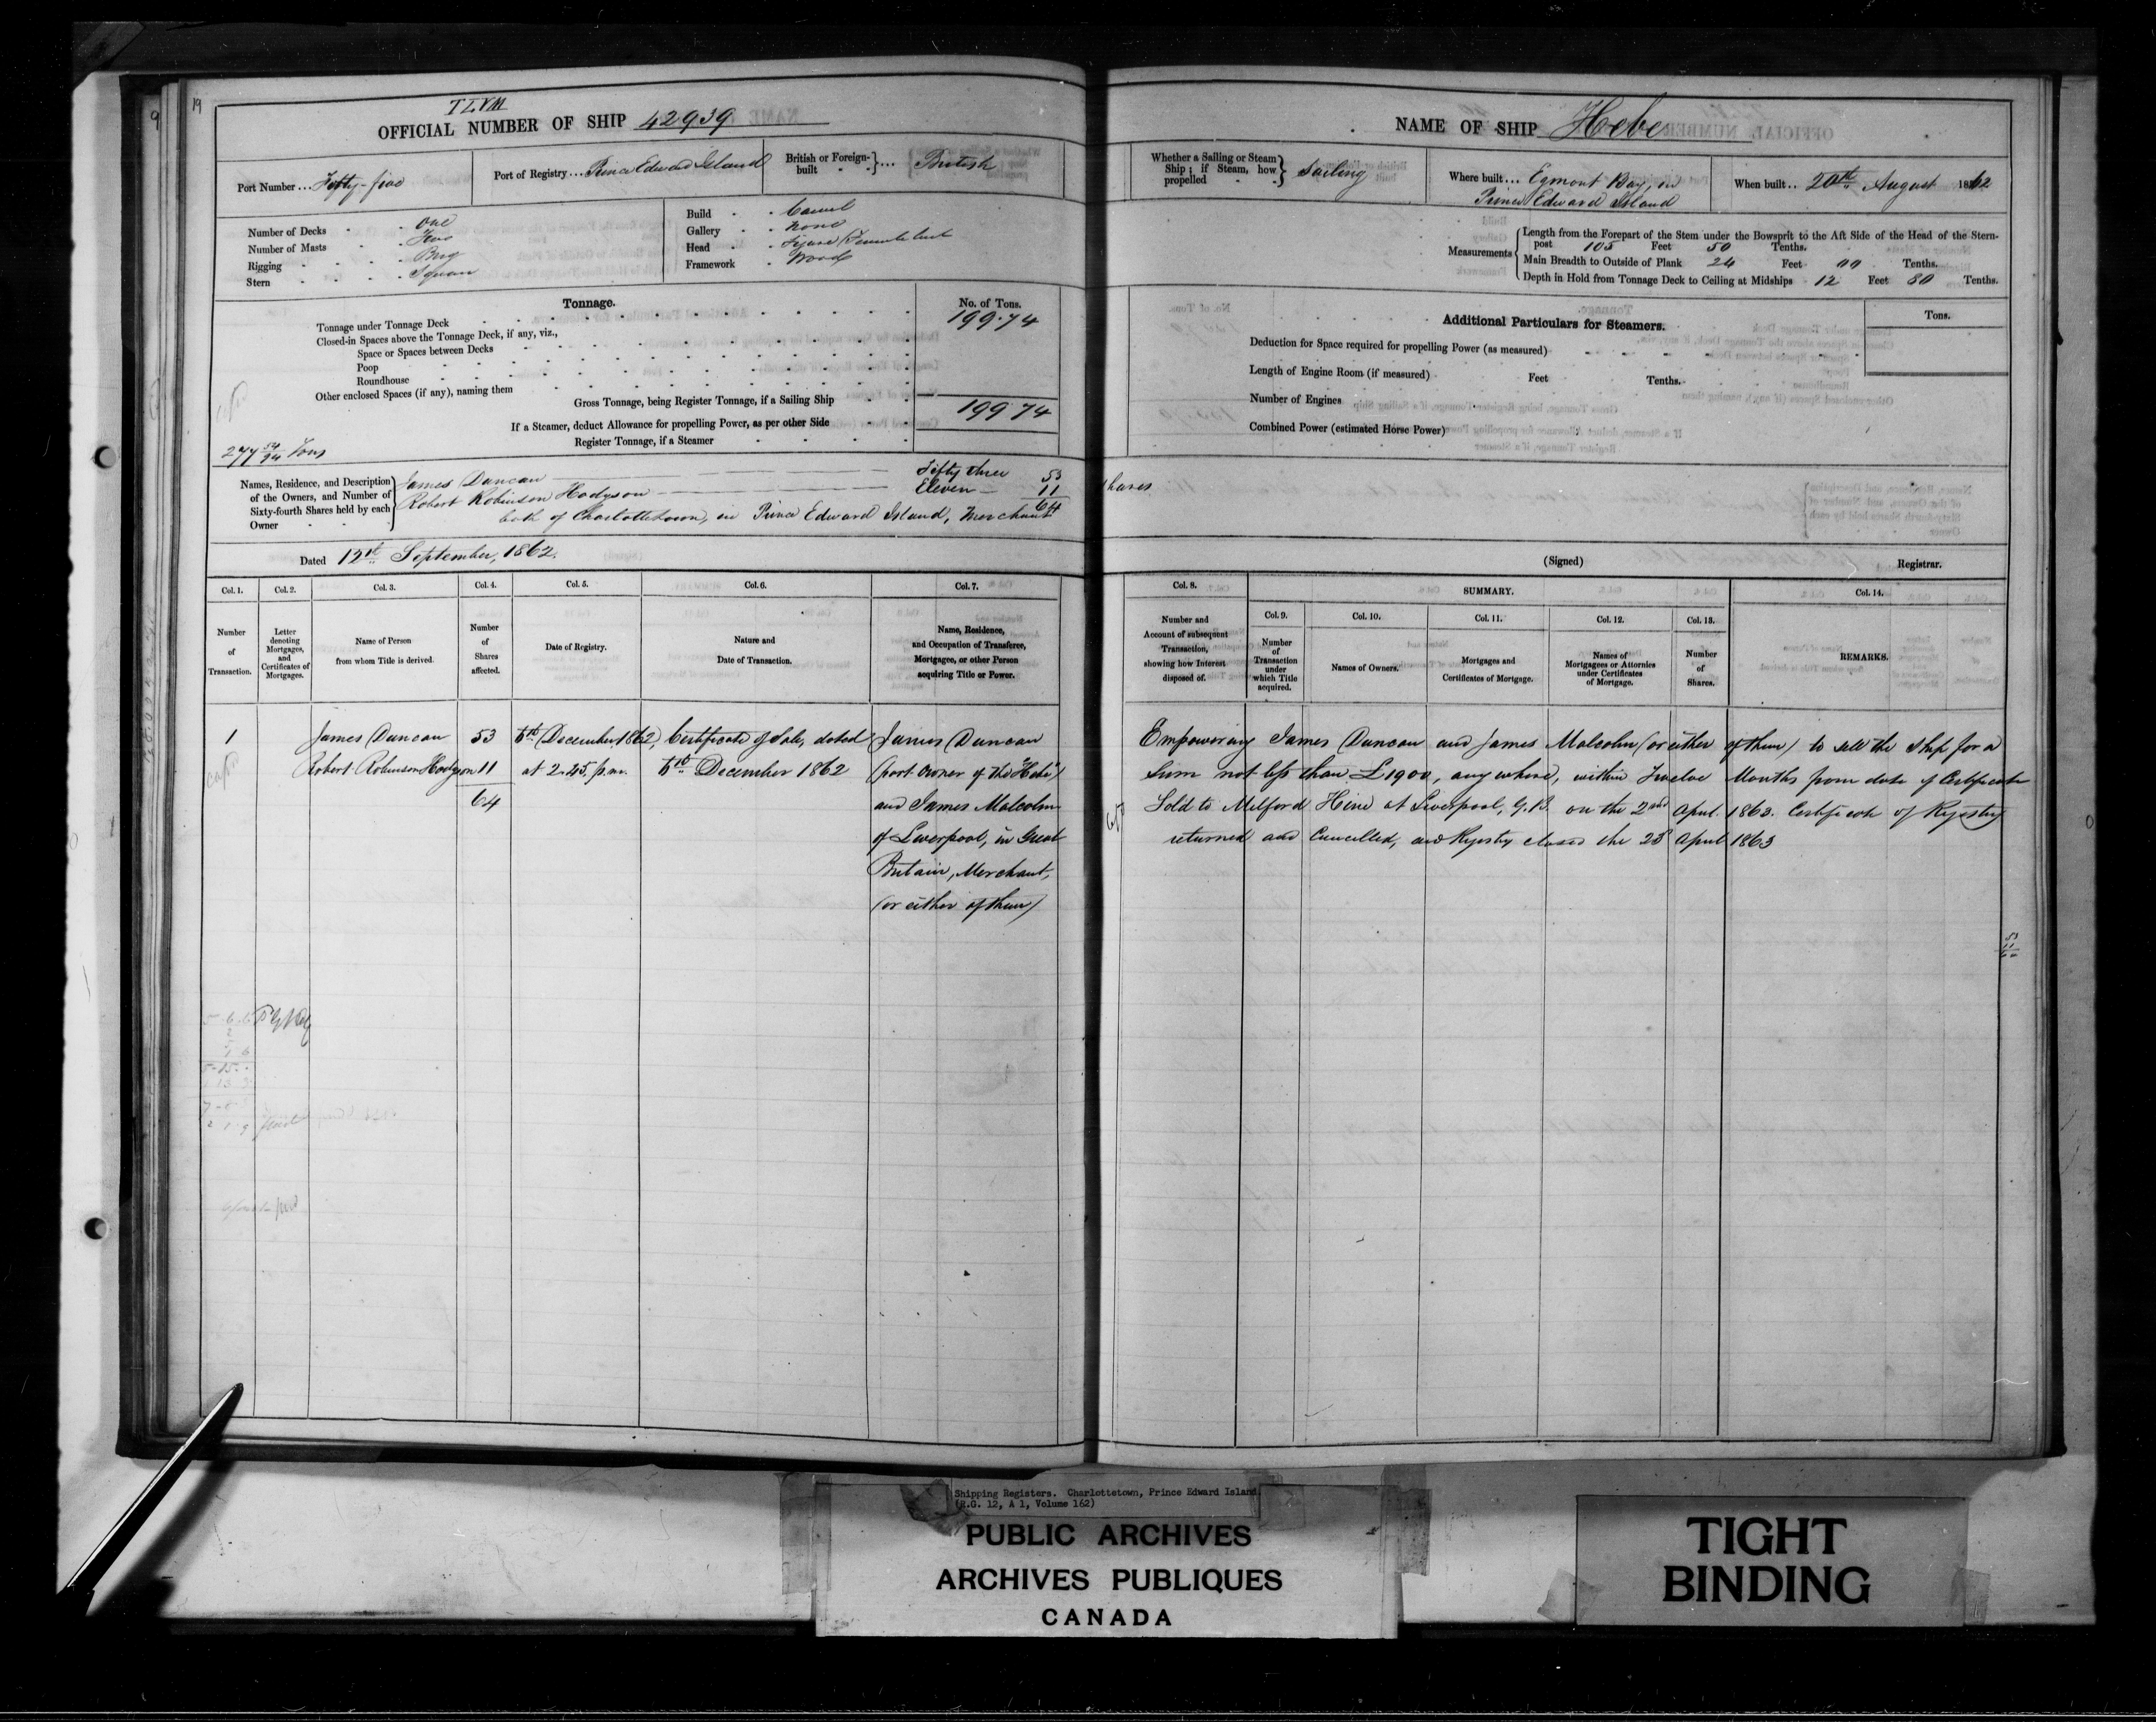 19
TLVM
OFFICIAL NUMBER OF SHIP 42939
NAME OF SHIP Hebe
Port Number ... Fifty-five
Port of Registry ... Prince Edward Island
British or Foreign-built ... British
Whether a Sailing or Steam Ship; if Steam, how propelled Sailing
Where built ... Egmont Bay, in Prince Edward Island
When built .. 20th August 1862
Number of Decks One
Number of Masts Two
Rigging Brig
Stern Square
Build Carvel
Gallery None
Head Figure, Female bust
Framework Wood
Measurements
Length from the Forepart of the Stem under the Bowsprit to the Aft Side of the Head of the Stern-
post 105 Feet 50 Tenths.
Main Breadth to Outside of Plank 24 Feet Tenths.
Depth in Hold from Tonnage Deck to Ceiling at Midships 12 Feet 80 Tenths.
Tonnage.
No. of Tons.
Tonnage under Tonnage Deck 199.74
Closed-in Spaces above the Tonnage Deck, if any, viz.,
Space or Spaces between Decks
Poop
Roundhouse
Other enclosed Spaces (if any), naming them
Gross Tonnage, being Register Tonnage, if a Sailing Ship 199.74
If a Steamer, deduct Allowance for propelling Power, as per other Side
Register Tonnage, if a Steamer
277 54/94 Tons
Additional Particulars for Steamers.
Tons.
Deduction for Space required for propelling Power (as measured)
Length of Engine Room (if measured) Feet Tenths.
Number of Engines
Combined Power (estimated Horse Power)
Names, Residence, and Description of the Owners, and Number of Sixty-fourth Shares held by each Owner
James Duncan Fifty three 53 shares
Robert Robinson Hodgson Eleven 11
64
both of Charlottetown, in Prince Edward Island, Merchant
Dated 12th September, 1862.
(Signed) Registrar.
Col. 1.
Number of Transaction.
Col. 2.
Letter denoting Mortgages, and Certificates of Mortgages.
Col. 3.
Name of Person from whom Title is derived.
Col. 4.
Number of Shares affected.
Col. 5.
Date of Registry.
Col. 6.
Nature and Date of Transaction.
Col. 7.
Name, Residence, and Occupation of Transferee, Mortgagee, or other Person acquiring Title or Power.
Col. 8.
Number and Account of subsequent Transaction, showing how Interest disposed of.
SUMMARY.
Col. 9.
Number of Transaction under which Title acquired.
Col. 10.
Names of Owners.
Col. 11.
Mortgages and Certificates of Mortgage.
Col. 12.
Names of Mortgagees or Attornies under Certificates of Mortgage.
Col. 13.
Number of Shares.
Col. 14.
REMARKS.
1 James Duncan 53 5th December 1862, Certificate of Sale, dated James Duncan
Robert Robinson Hodgson 11 at 2.45. p.m. 5th December 1862 (part owner of the "Hebe")
64 and James Malcolm
of Liverpool, in Great
Britain, Merchant,
(or either of them)
Empowering James Duncan and James Malcolm (or either of them) to sell the Ship for a
Sum not less than £1900, any where, within Twelve Months from date of Certificate
Sold to Milford Hine at Liverpool, G.B. on the 2nd April. 1863. Certificate of Registry
returned and Cancelled, and Registry closed the 23d April 1863
Shipping Registers. Charlottetown, Prince Edward Island.
(R.G. 12, A 1, Volume 162)
PUBLIC ARCHIVES
ARCHIVES PUBLIQUES
CANADA
TIGHT
BINDING